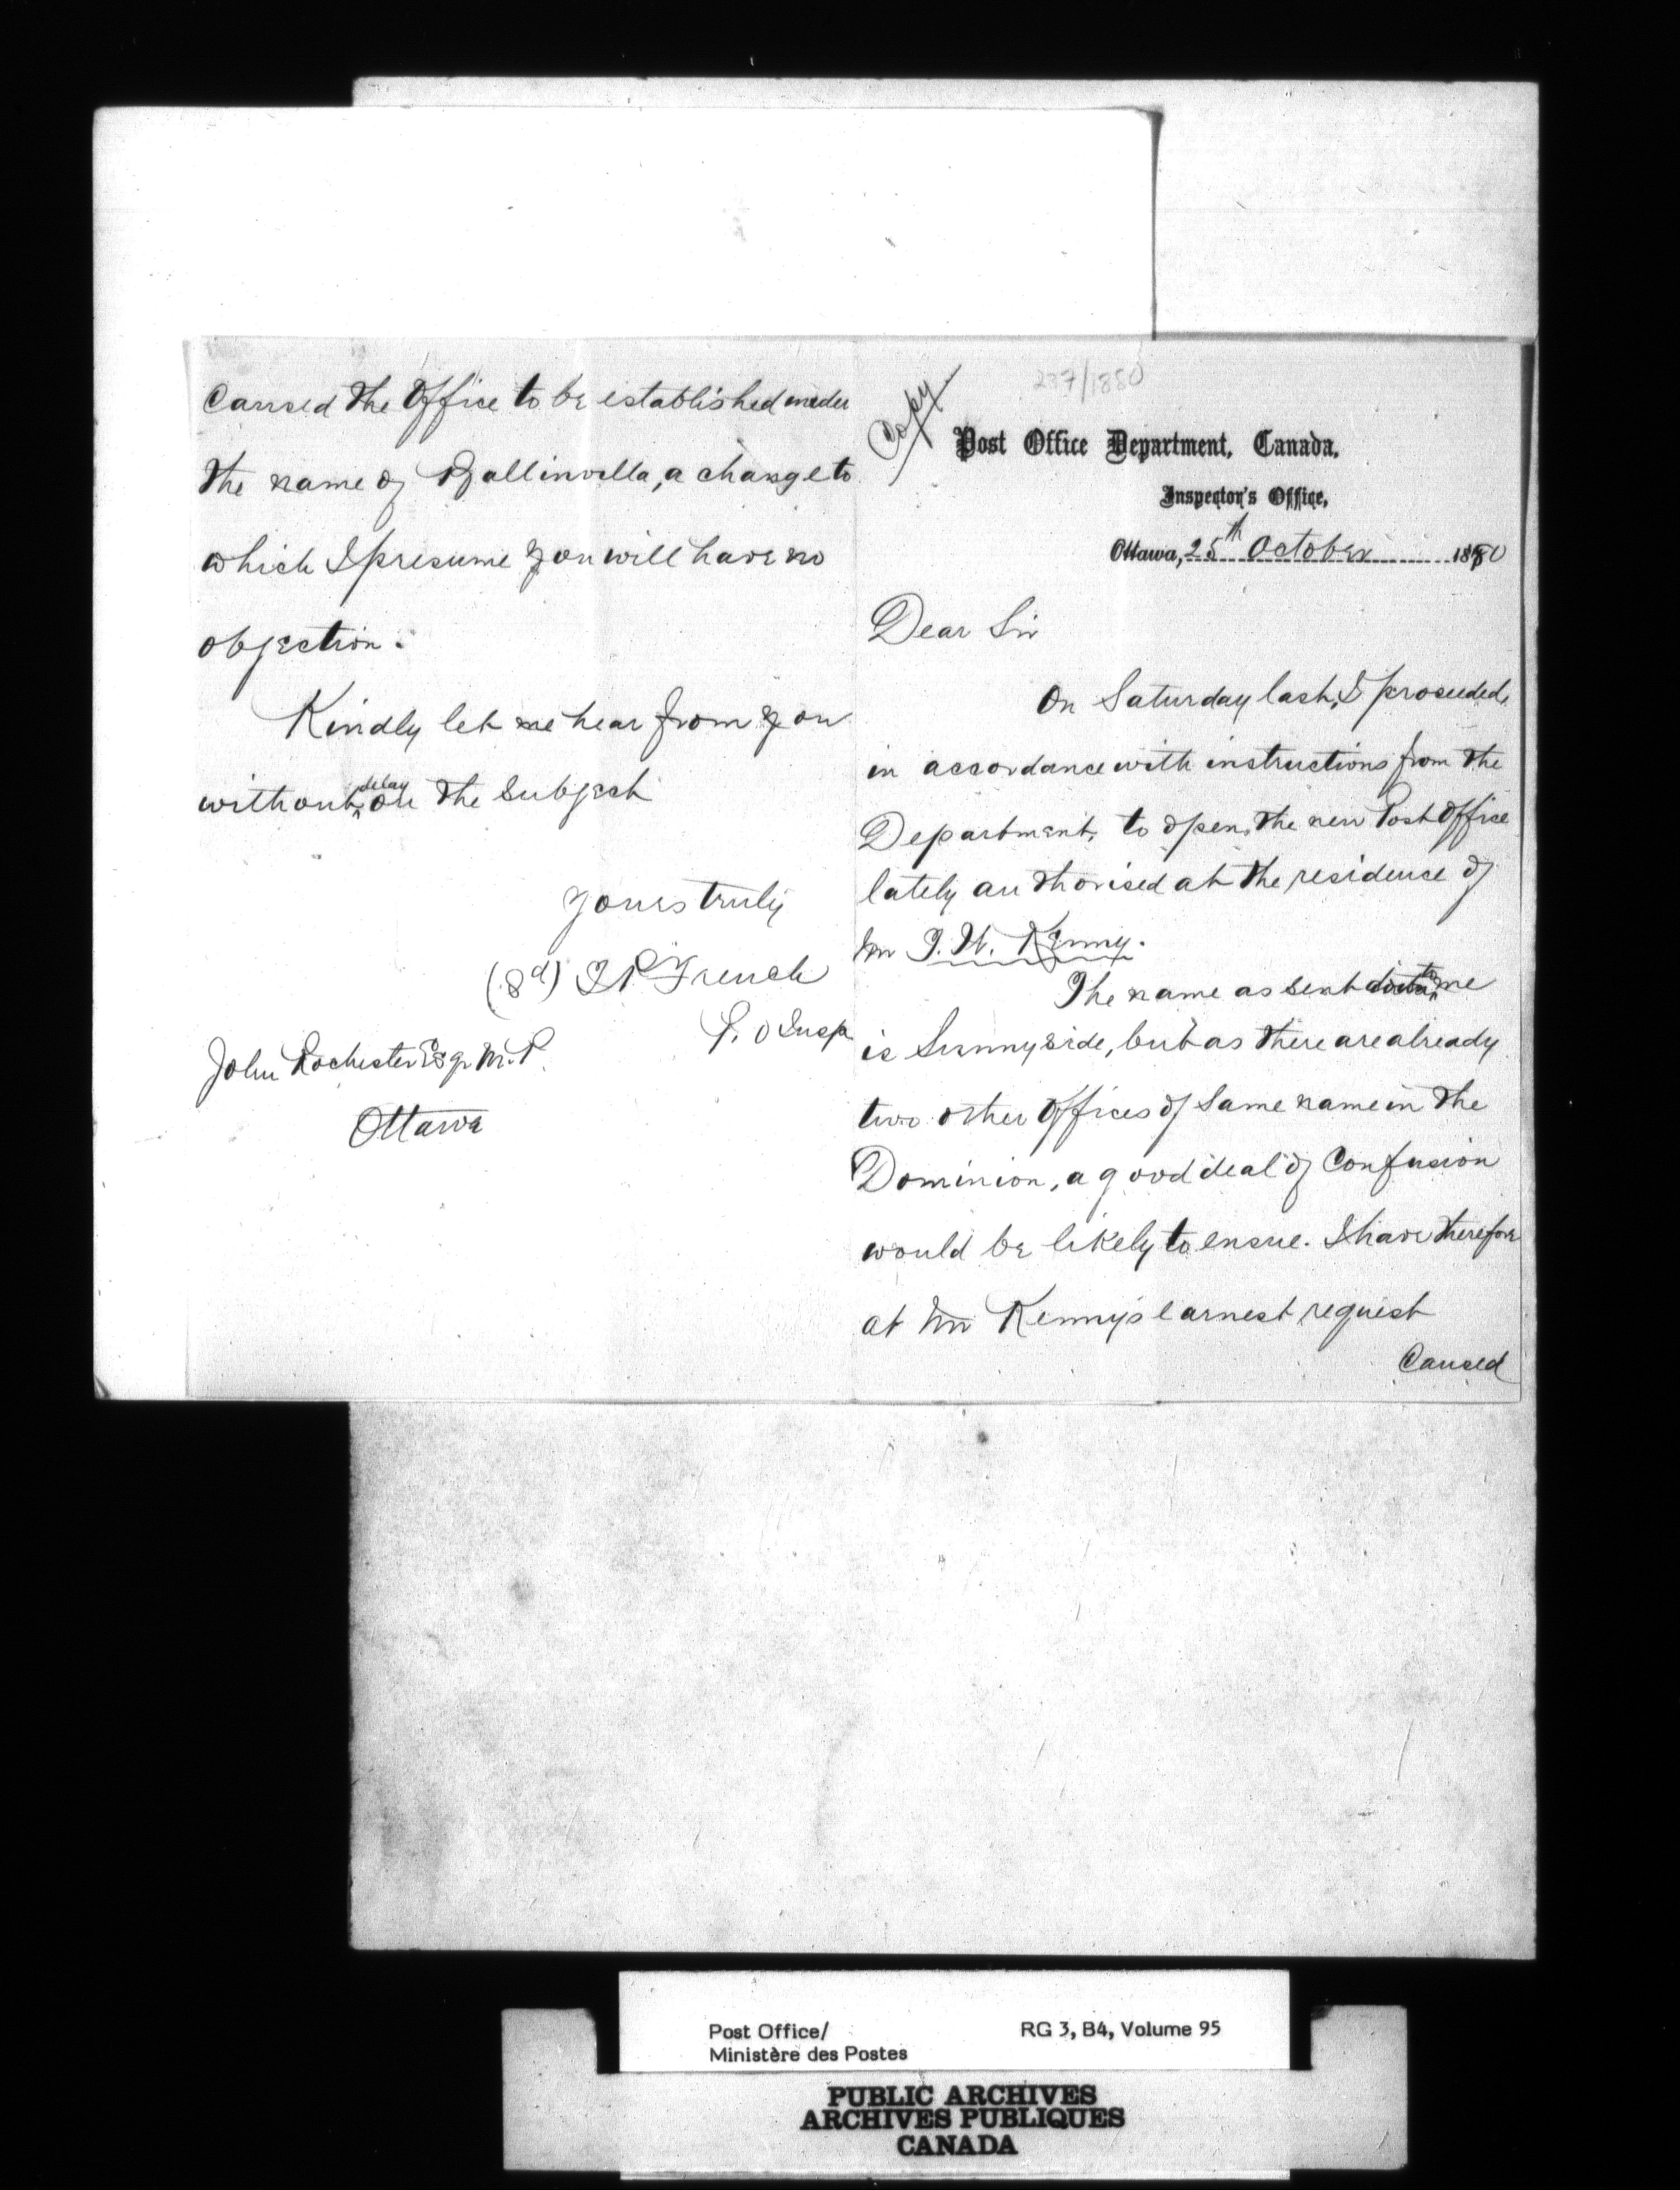 Copy
237/1880
Post Office Department, Canada.
Inspector's Office,
Ottawa, 25th October 1880
Dear Sir
On Saturday last, I proceeded,
in accordance with instructions from the
Department, to open, the new Post Office
lately authorised at the residence of
Mr T. W. Kenny.
The name as sent to me
is Sunnyside, but as there are already
two other Offices of Same name in the
Dominion, a good deal of Confusion
would be likely to ensue. I have therefore
at Mr Kenny's earnest request
Caused
Caused the Office to be established under
the name of Ballinvilla, a change to
which I presume you will have no
objection.
Kindly let me hear from you
without delay on the subject
Yours truly
(Sd) T P French
P. O Insp
John Rochester Esqr M.P.
Ottawa
Post Office/
Ministère des Postes
RG 3, B4, Volume 95
PUBLIC ARCHIVES
ARCHIVES PUBLIQUES
CANADA